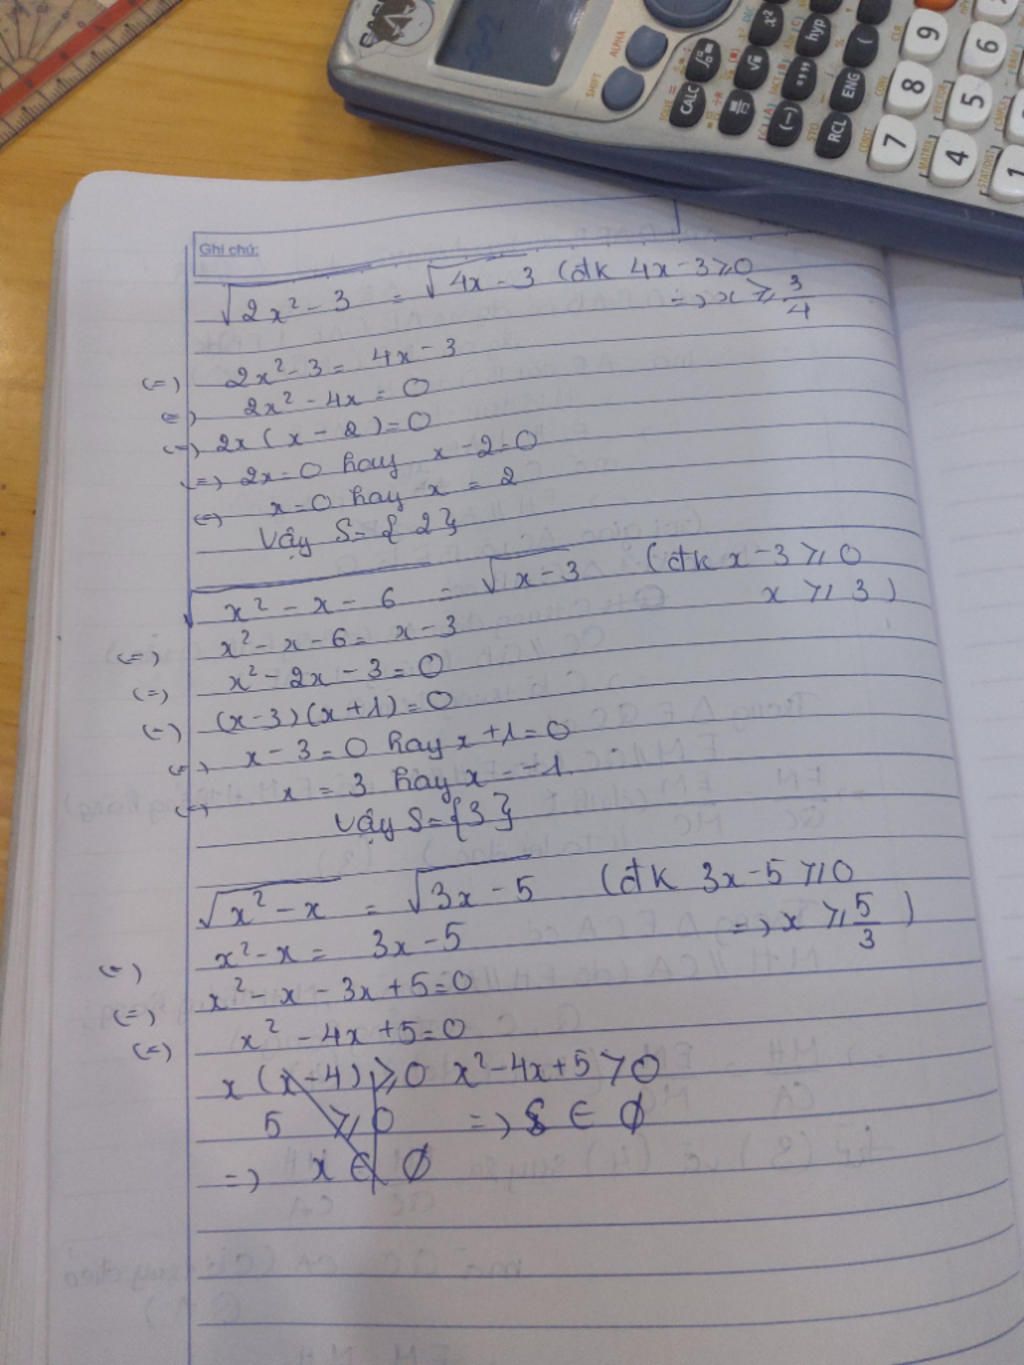 CALC
SHIFT
ALPHA
hyp
ENG
RCL
(-)
(
7
8
9
4
5
6
1
Ghi chú:
√2x² - 3 = √4x - 3 (đk 4x - 3 ⩾ 0
=> x ⩾ 3/4
(=) 2x² - 3 = 4x - 3
(=) 2x² - 4x = 0
(=) 2x (x - 2) = 0
(=) 2x = 0 hay x - 2 = 0
(=) x = 0 hay x = 2
Vậy S = {2}
√x² - x - 6 = √x - 3 (đk x - 3 ⩾ 0
x ⩾ 3)
(=) x² - x - 6 = x - 3
(=) x² - 2x - 3 = 0
(=) (x - 3)(x + 1) = 0
(=) x - 3 = 0 hay x + 1 = 0
(=) x = 3 hay x = -1
Vậy S = {3}
√x² - x = √3x - 5 (đk 3x - 5 ⩾ 0
=> x ⩾ 5/3)
(=) x² - x = 3x - 5
(=) x² - x - 3x + 5 = 0
(=) x² - 4x + 5 = 0
x (x - 4) ⩾ 0 x² - 4x + 5 > 0
5 ⩾ 0 => S ∈ ∅
=> x ∈ ∅